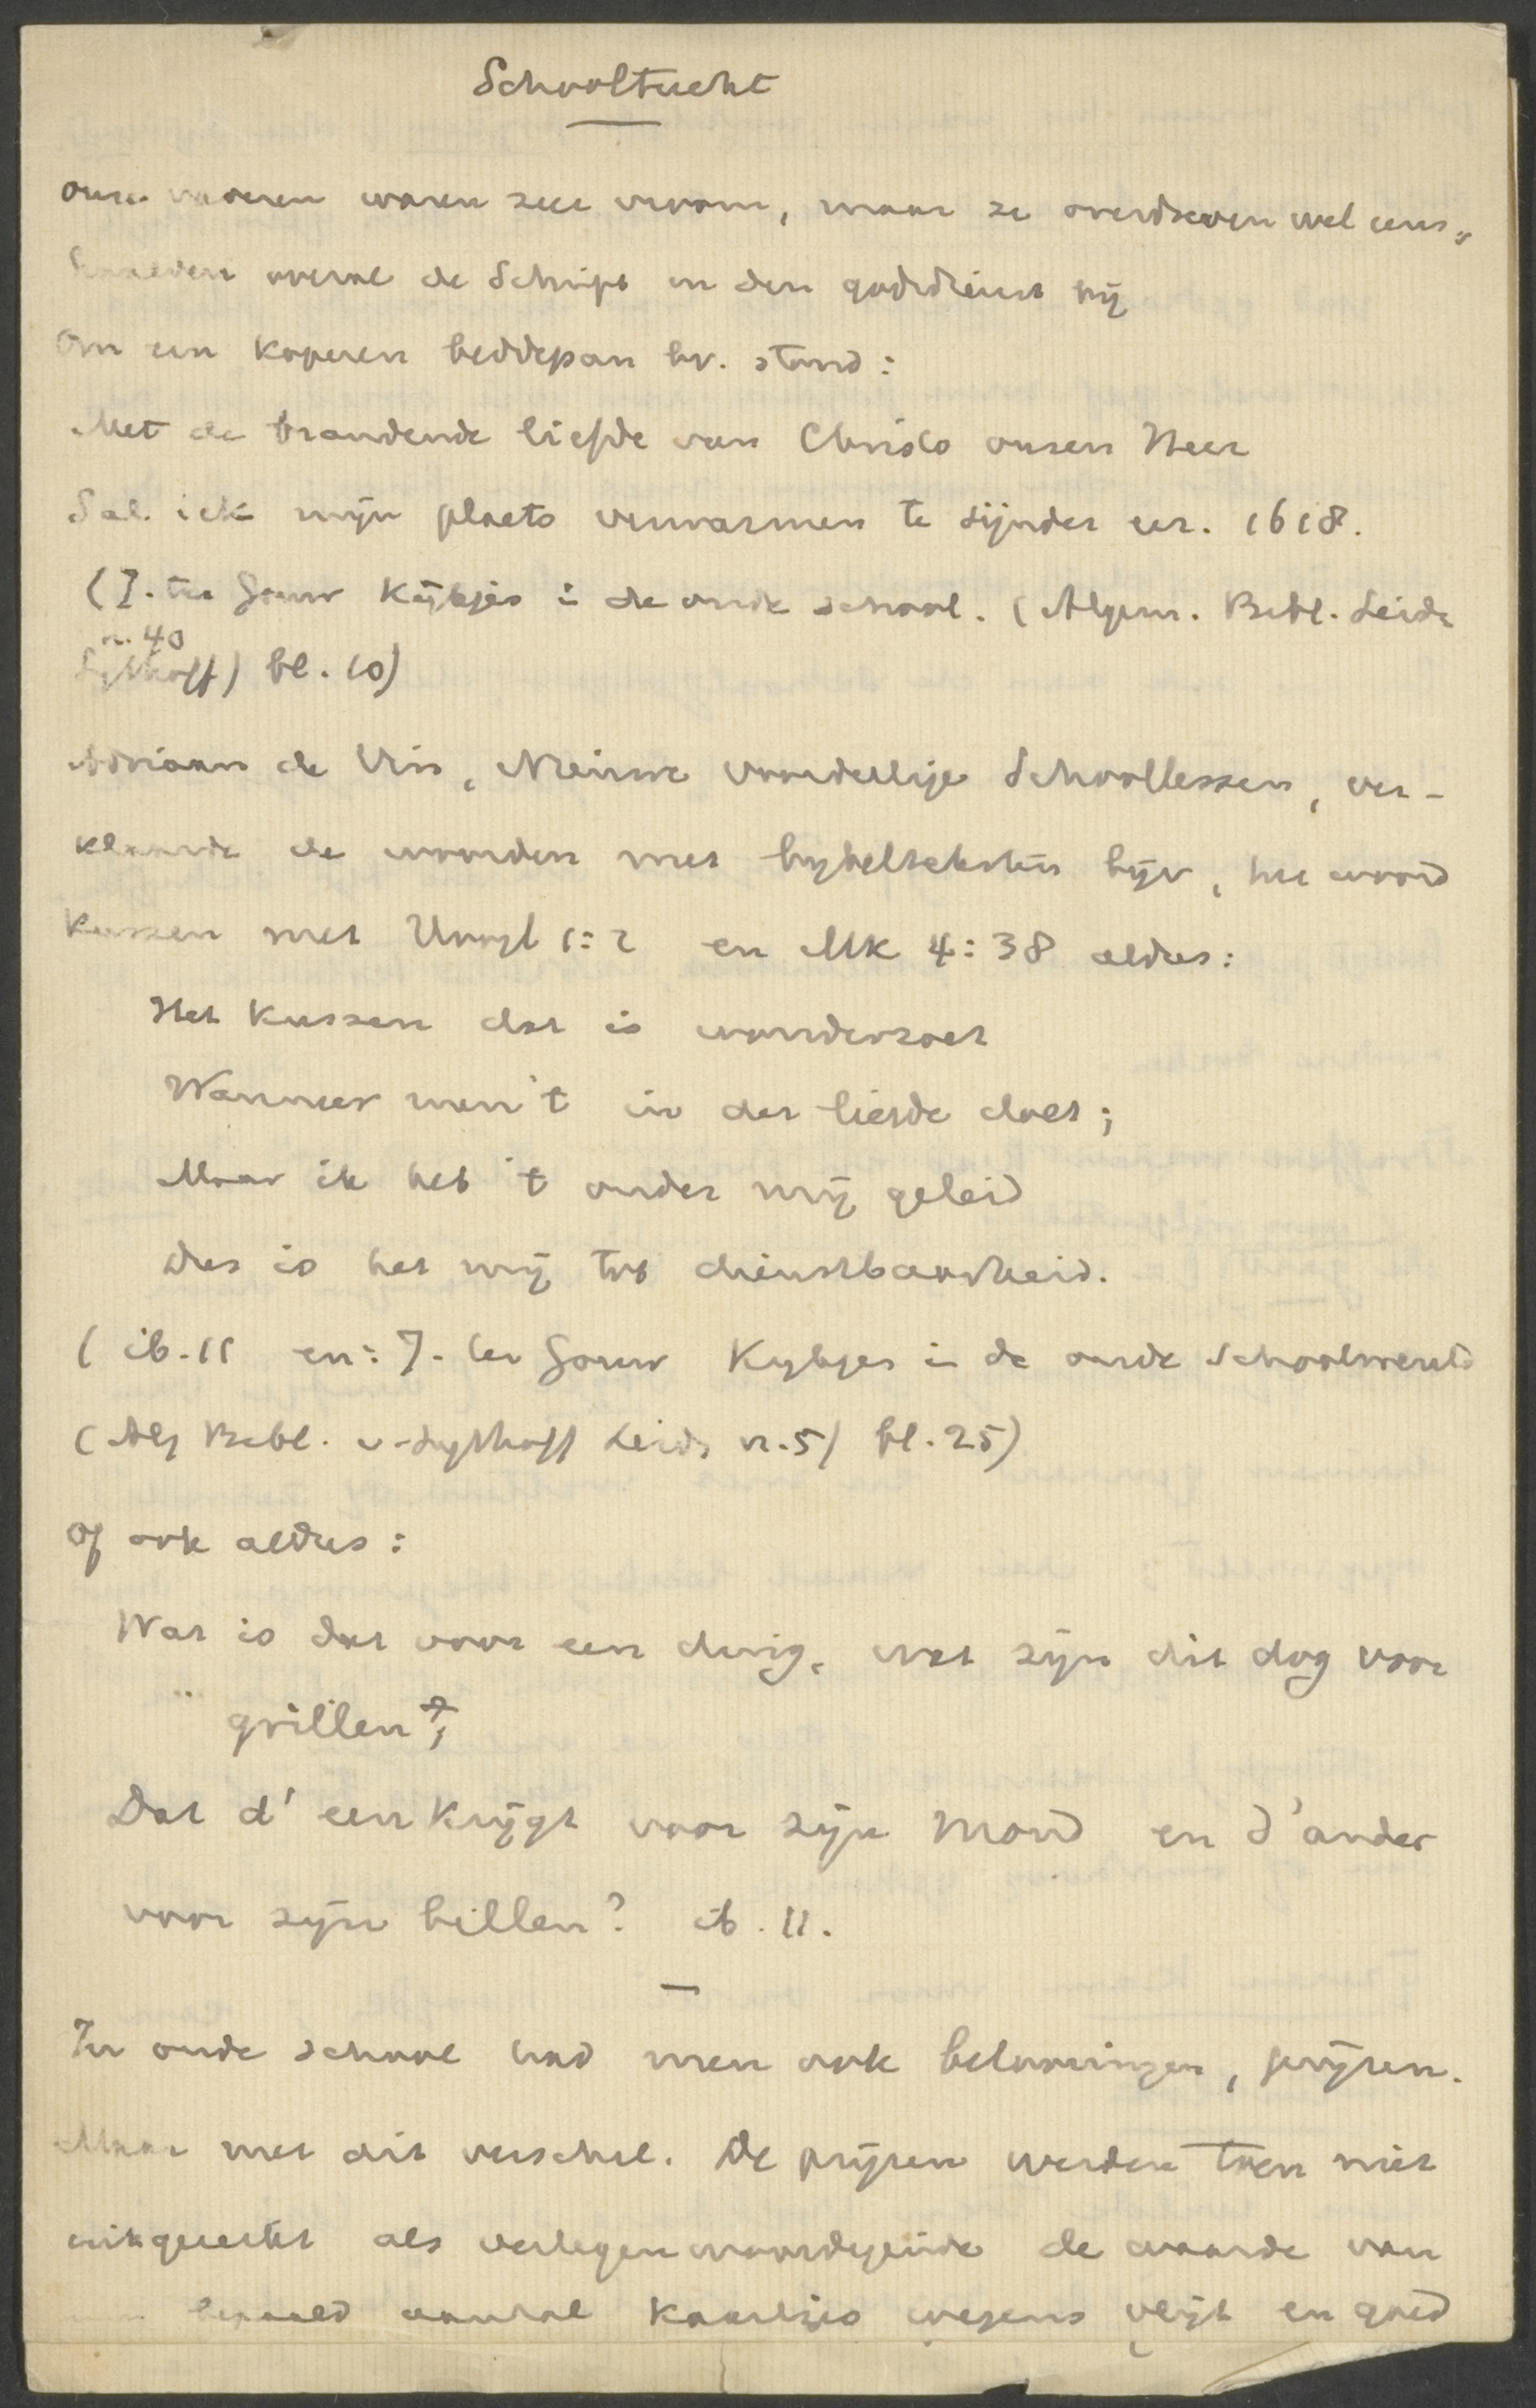 Schooltucht
onze vaderen waren zeer vroom, maar ze overdreven wel eens,
haalden overal de Schrift en den godsdienst bij
Om een koperen beddepan bv. stond:
Met de brandende liefde van Christo onsen Heer
Sal ick mijn plaets verwarmen te sijnder eer. 1618.
(J. ter Gouw Kijkjes i de oude school. (Algem. Bibl. Leide
n. 40
Sijthoff) bl. 10)
Adriaan de Vin, Nieuwe voordeelige Schoollessen, ver-
klaarde de woorden met bybelteksten bijv, het woord
kussen met Hoogl 1:2 en Mk 4:38 aldus:
Het kussen dat is wonderzoet
Wanneer men 't in der liefde doet;
Maar ik heb 't onder mij geleid
Dus is het mij tot dienstbaarheid.
(ib. 11 en: J. ter Gouw Kykjes in de oude schoolwereld
(Alg Bibl. v. Sythoff Leids n. 5) bl. 25)
Of ook aldus:
Wat is dat voor een ding, wat zijn dit dog voor
grillen?;
Dat d' een krijgt voor zijn mond en d'ander
voor zijn billen? ib. 11.
In oude school had men ook belooningen, prijzen.
Maar met dit verschil. De prijzen werden toen niet
uitgereikt als vertegenwoordigende de waarde van
bepaald aantal kaartjes wegens vlijt en goed